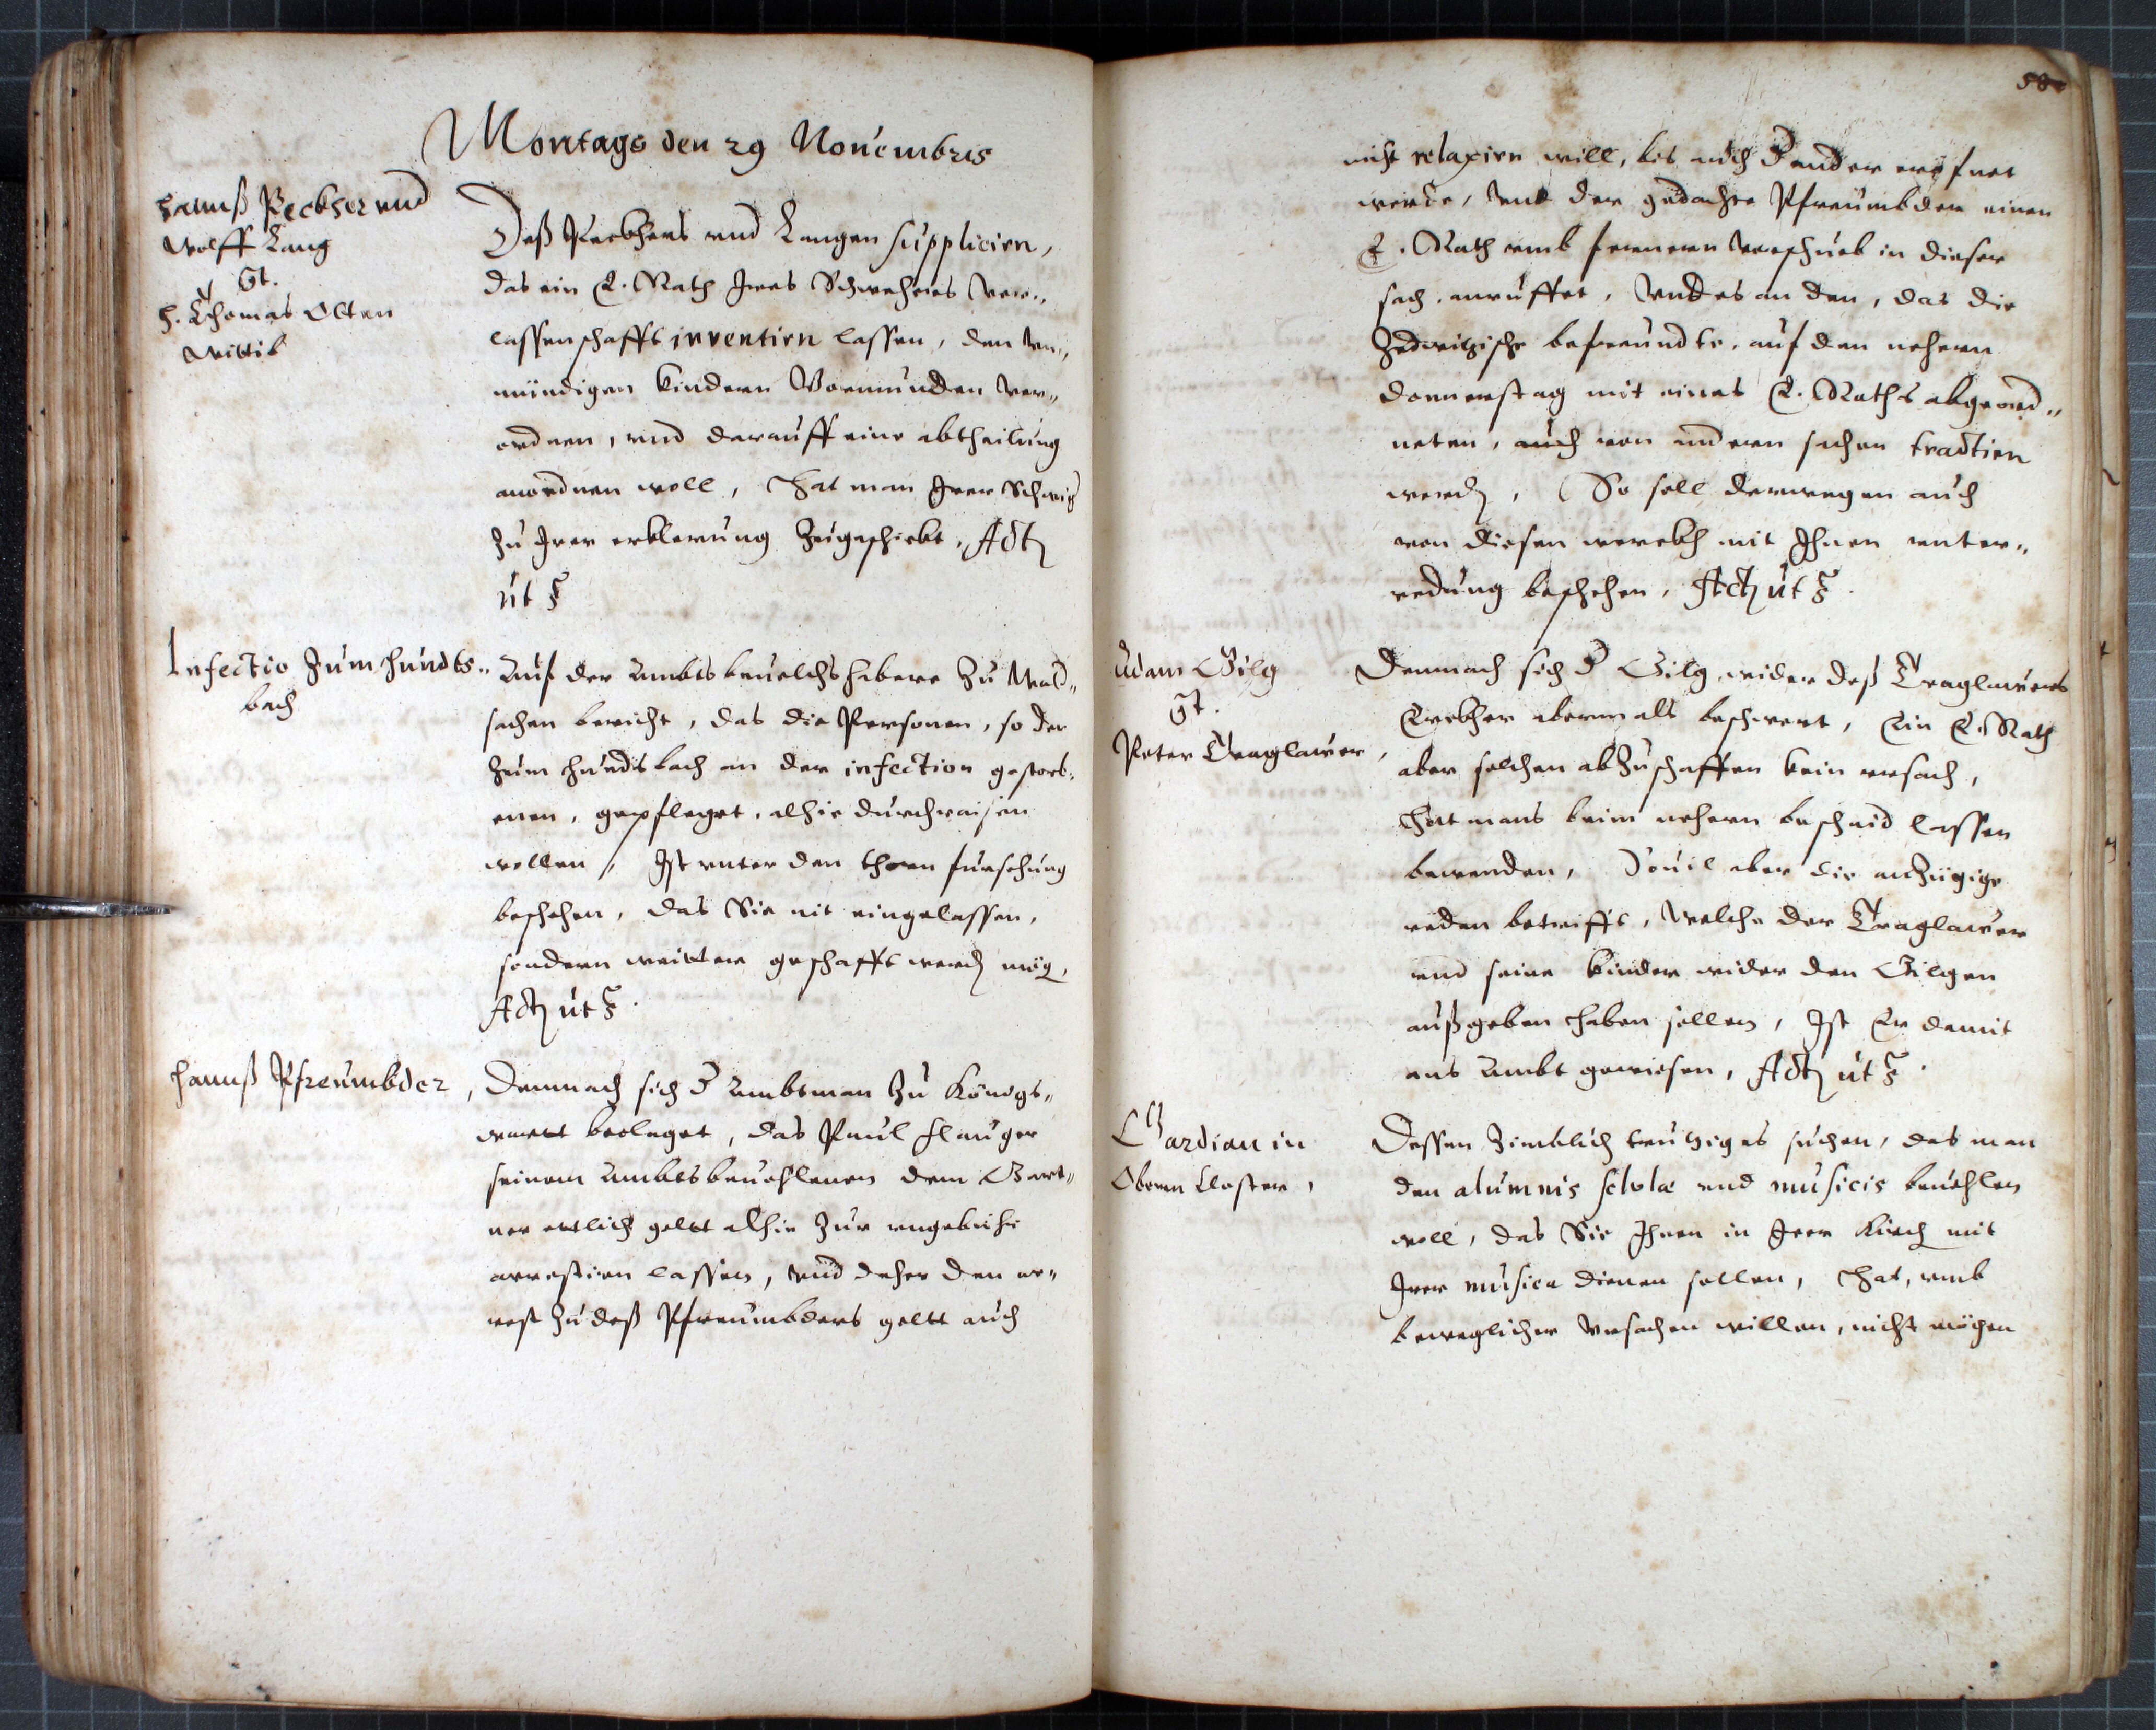 Montags den 29 Nouembris
Hannß Peckher vnd
Wolff Lang
Ct.
H. Thomas Olten
Wittib
Deß Peckhers vnd Langen suppliciren,
das ein E. Rath Jres Schwehers Ver„
lassenschafft inventirn lassen, den vn„
mündigen kindern Vormunden Ver„
ordnen, vnd darauff eine abtheilung
anordnen woll, Hat man Jrer Schwig
zu Jrer erklerung zugeschickt, Act
ut s
Infectio zum Hundts„
bach
Auf der Ambtsbeuelchshabere zu Wald„
sachsen bericht, das die Personen, so der
zum Hundtsbach an der infection gestorb„
enen, gepfleget, alhie durchraisen
wollen, Ist vnter den thoren fursehung
beschehen, das Sie nit eingelassen,
sondern weitter geschafft werd mög,
Act ut s.
Hannß Pfreumbder,
Demnach sich d Ambtman zu Königs„
wartt beclaget, das Paul Flauger
seinem Ambtsbeuehlenen dem Gart„
ner ettlich geltt alhie zur vngebuhr
arrestiren lassen, vnd daher den ar„
rest zu deß Pfreumbders geltt auch
58
nicht relaxirn will, bis auch d ander eröfnet
werde, Vnd der gedachte Pfreumbder einen
E. Rath vmb fernern Vorschueb in dieser
sach anruffet, Vnd es an den, das die
Zedwizische befreundte, auf den nehern
donnerstag mit eines E. Raths abgeord„
neten, auch von andern sachen tractirn
werd, So soll derwegen auch
von diesen werckh mit Jhnen vnter„
redung beschehen, Act ut s.
Adam Gilg
Ct.
Peter Traglawer,
Demnach sich d Gilg wider deß Traglawers
Erckher abermals beschwert, Ein E. Rath
aber solchen abzuschaffen kein vrsach,
Hat mans beim nehern bescheid lassen
bewenden, Souil aber die anzügige
reden betrifft, Welche der Traglawer
vnd seine kinder wider den Gilgen
außgeben haben sollen, Ist Er damit
ans Ambt gewiesen, Act ut s.
Gardian in
Obern Closter,
Dessen zimblich trutziges suchen, das man
den alumnis scholæ vnd musicis beuehlen
woll, das Sie Jhnen in Jrer Kirch mit
Jrer musica dienen sollen, Hat, vmb
beweglicher Vrsachen willen, nicht mögen